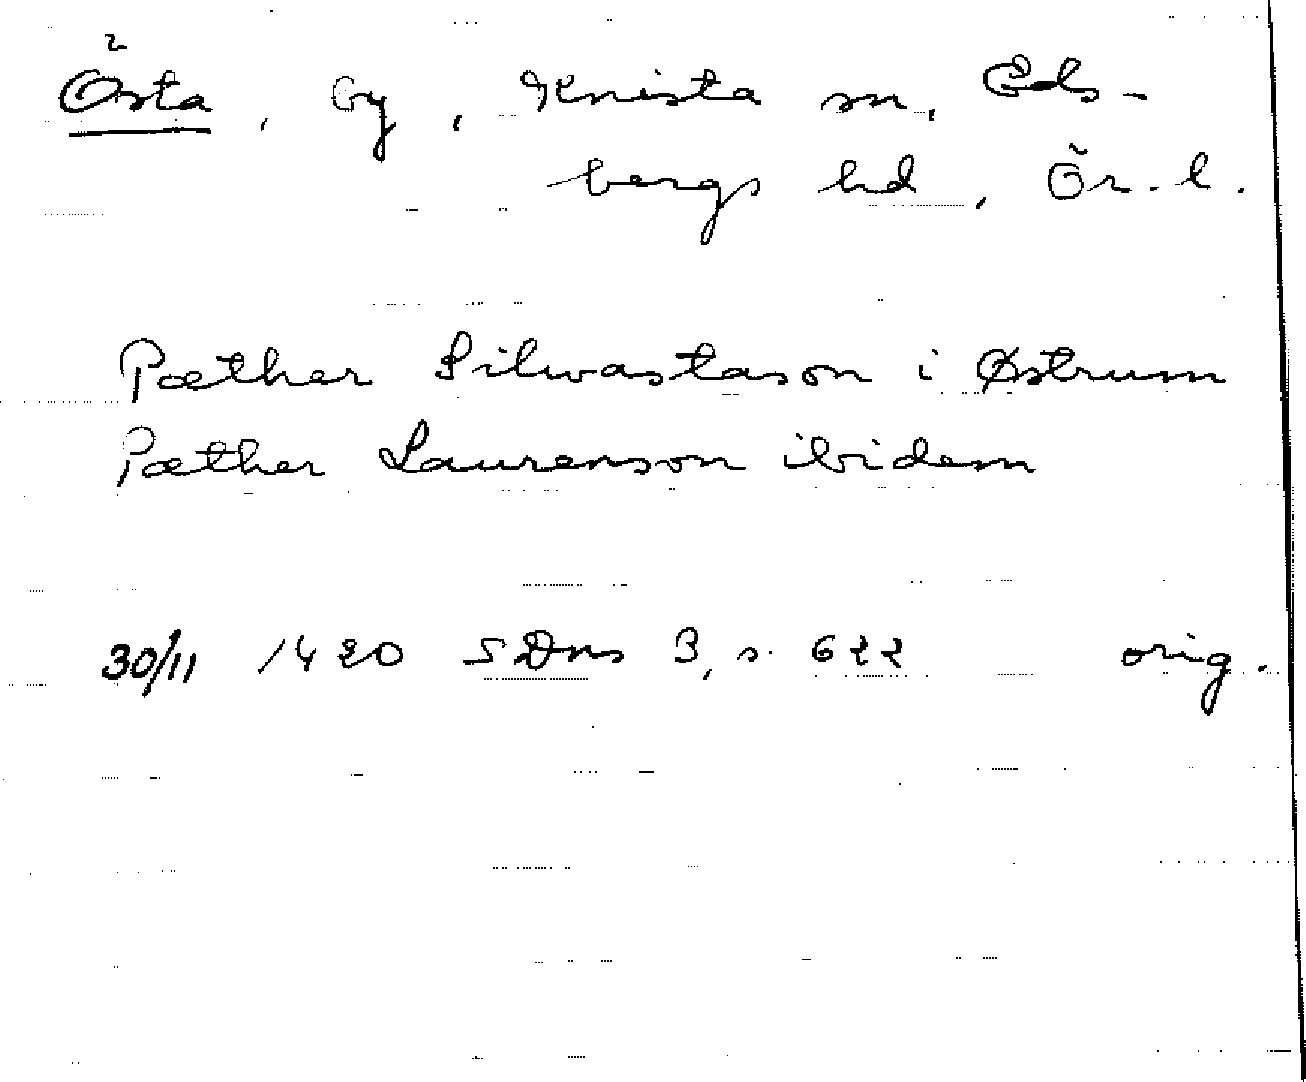 Östa, by, Knista sn, Eds-
bergs hd, Ör. l.
Pæther Silwastason i Østrum
Pæther Laurenson ibidem
30/11 1420 SDns 3, s. 622 orig.